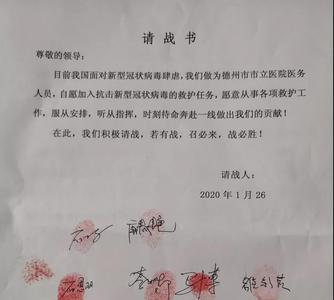 请战书
尊敬的领导：
目前我国面对新型冠状病毒肆虐，我们做为德州市市立医院医务
人员，自愿加入抗击新型冠状病毒的救护任务，愿意从事各项救护工
作，服从安排，听从指挥，时刻待命奔赴一线做出我们的贡献！
在此，我们积极请战，若有战，召必来，战必胜！
请战人：
2020 年 1 月 26